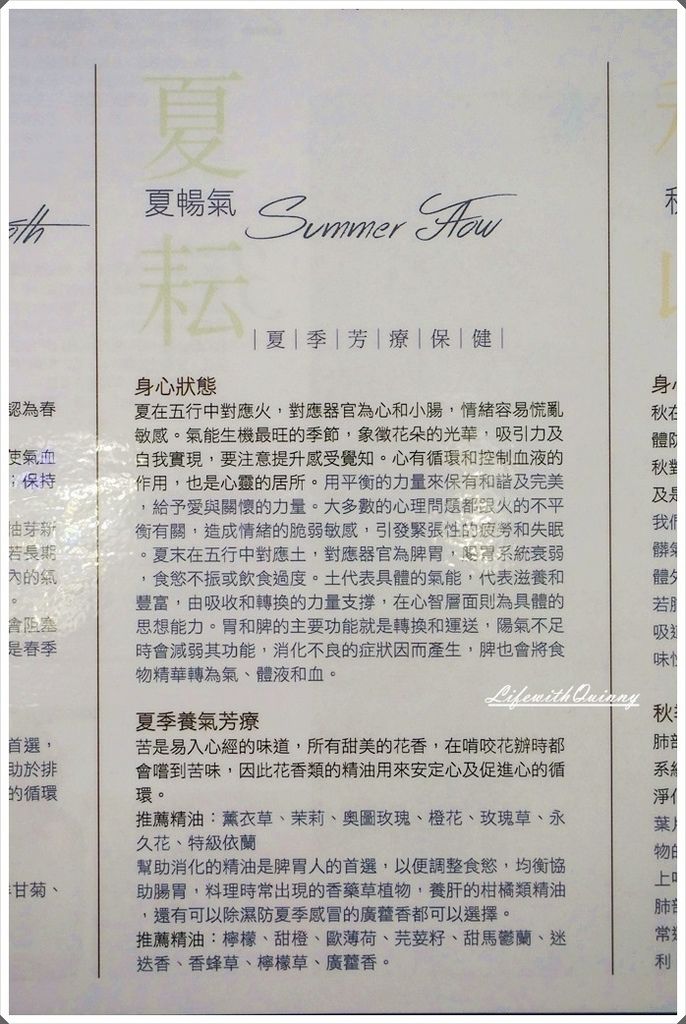 夏
夏暢氣
Summer Flow
耘
|夏|季|芳|療|保|健|
身心狀態
夏在五行中對應火，對應器官為心和小腸，情緒容易慌亂
敏感。氣能生機最旺的季節，象徵花朵的光華，吸引力及
自我實現，要注意提升感受覺知。心有循環和控制血液的
作用，也是心靈的居所。用平衡的力量來保有和諧及完美
，給予愛與關懷的力量。大多數的心理問題都跟火的不平
衡有關，造成情緒的脆弱敏感，引發緊張性的疲勞和失眠
。夏末在五行中對應土，對應器官為脾胃，腸胃系統衰弱
，食慾不振或飲食過度。土代表具體的氣能，代表滋養和
豐富，由吸收和轉換的力量支撐，在心智層面則為具體的
思想能力。胃和脾的主要功能就是轉換和運送，陽氣不足
時會減弱其功能，消化不良的症狀因而產生，脾也會將食
物精華轉為氣、體液和血。
LifewithQuinny
夏季養氣芳療
苦是易入心經的味道，所有甜美的花香，在啃咬花瓣時都
會嚐到苦味，因此花香類的精油用來安定心及促進心的循
環。
推薦精油：薰衣草、茉莉、奧圖玫瑰、橙花、玫瑰草、永
久花、特級依蘭
幫助消化的精油是脾胃人的首選，以便調整食慾，均衡協
助腸胃，料理時常出現的香藥草植物，養肝的柑橘類精油
，還有可以除濕防夏季感冒的廣藿香都可以選擇。
推薦精油：檸檬、甜橙、歐薄荷、芫荽籽、甜馬鬱蘭、迷
迭香、香蜂草、檸檬草、廣藿香。
認為春
使氣血
；保持
油芽新
若長期
內的氣
。
會阻塞
是春季
首選，
助於排
的循環
甘菊、
秋在
體防
秋對
及是
我們
體外
若肺
吸道
味
肺部
系統
淨化
葉片
物的
上呼
肺部
常
利